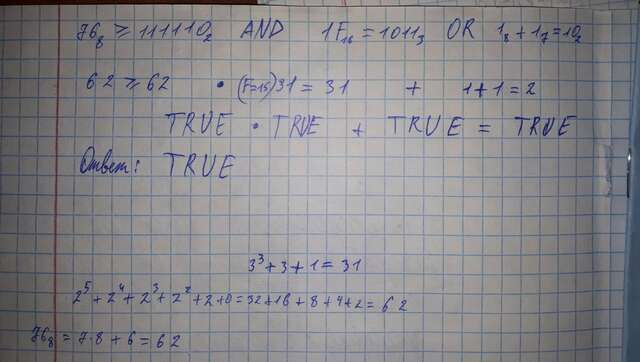 76₈ ≥ 111110₂ AND 1F₁₆ = 1011₃ OR 1₈ + 1₇ = 10₂
62 ≥ 62 • (F=15) 31 = 31 + 1 + 1 = 2
TRUE • TRUE + TRUE = TRUE
Ответ: TRUE
3³ + 3 + 1 = 31
2⁵ + 2⁴ + 2³ + 2² + 2 + 0 = 32 + 16 + 8 + 4 + 2 = 62
76₈ = 7·8 + 6 = 62